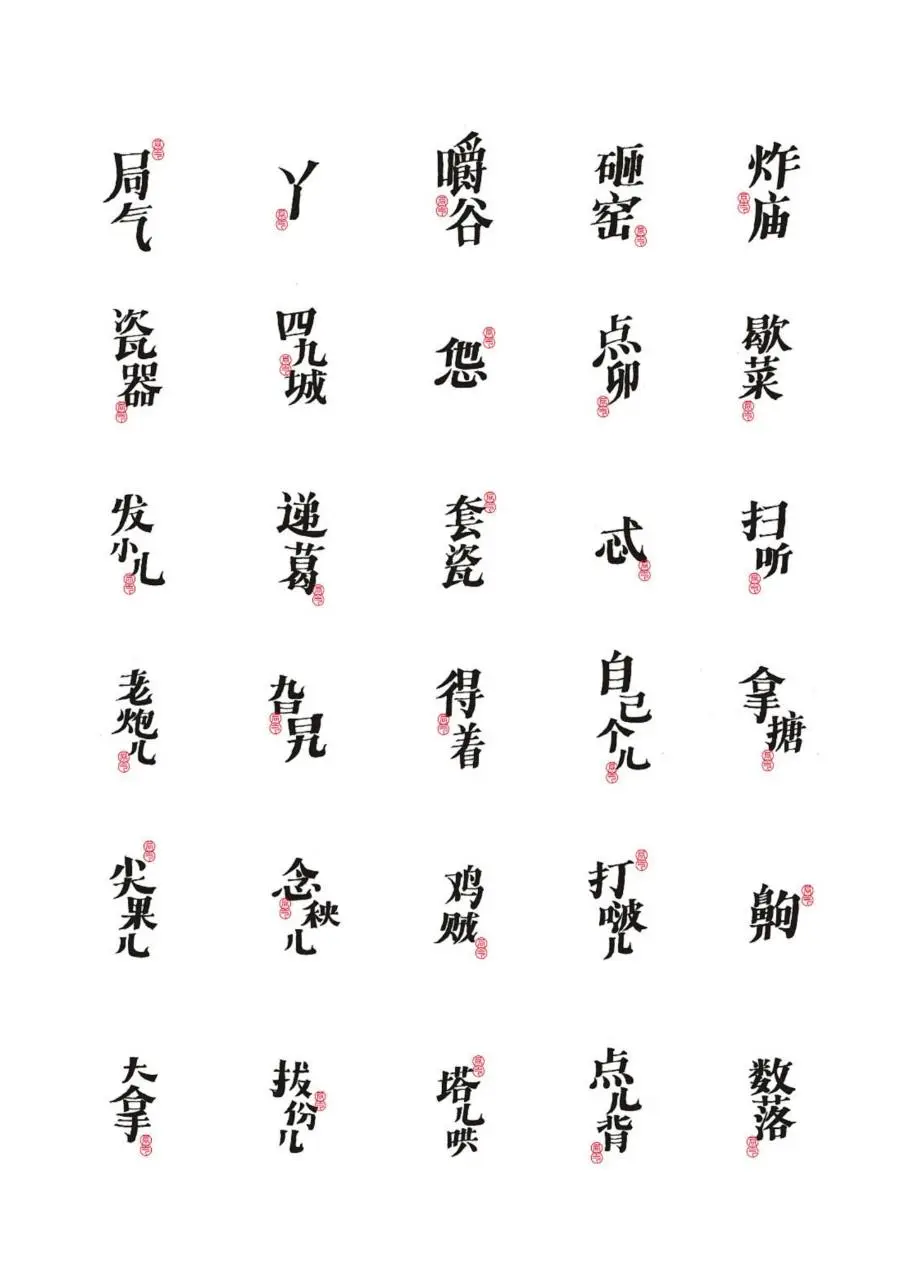 局气
丫
嚼谷
砸窑
炸庙
瓷器
四九城
怹
点卯
歇菜
发小儿
递葛
套瓷
忒
扫听
老炮儿
旮旯
得着
自己个儿
拿搪
尖果儿
念秧儿
鸡贼
打啵儿
齁
大拿
拔份儿
塔儿哄
点儿背
数落